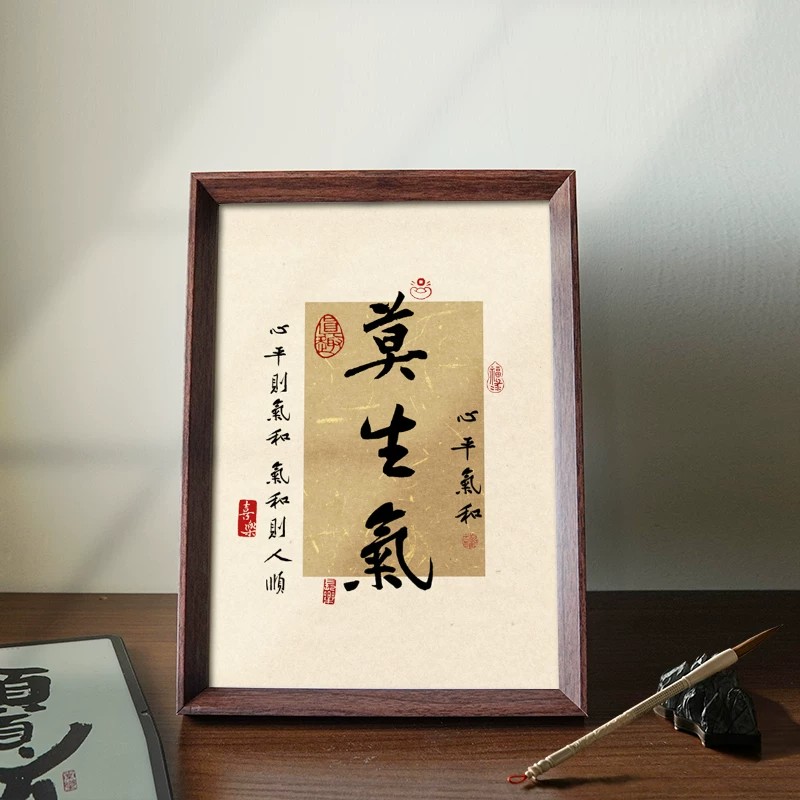 莫生氣
心平氣和
心平則氣和 氣和則人順
喜樂